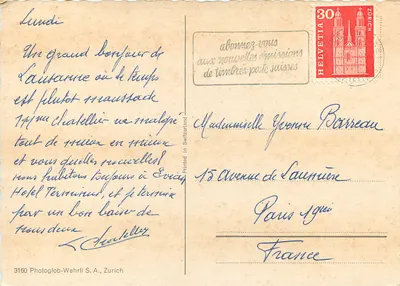 Lundi
Un grand bonjour de
Lausanne où le temps
est plutôt maussade
Mme Chatellier va malgré
tout de mieux en mieux
et vous quelles nouvelles
nous habitons toujours à Evian
Hotel Terminus, et je termine
par un bon baiser de
nous deux
Chatellier
3160 Photoglob-Wehrli S. A., Zurich
Printed in Switzerland
abonnez-vous
aux nouvelles émissions
de timbres-poste suisses
30
HELVETIA
ZÜRICH
Mademoiselle Yvonne Barreau
15 Avenue de
Paris
France